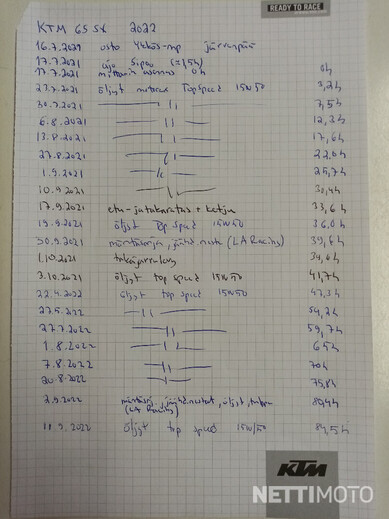 READY TO RACE
KTM 65 SX 2022
16.7.2021 osto
17.7.2021 ajo Sipoo (≈1,5h)
17.7.2021 mittarin asennus 0h 0h
27.7.2021 öljyt Top Speed 15W50 3,2h
30.7.2021 —— 11 —— 7,5h
6.8.2021 —— 11 —— 12,3h
13.8.2021 —— 11 —— 17,6h
27.8.2021 —— 11 —— 22,0h
1.9.2021 —— 11 —— 25,7h
10.9.2021 —— 11 —— 30,4h
17.9.2021 etu- ja takaratas + ketju 33,6h
19.9.2021 öljyt Top Speed 15W50 36,0h
30.9.2021 mäntäsarja, jäähd.neste (LA Racing) 39,6h
1.10.2021 39,6h
3.10.2021 öljyt top speed 15W50 41,7h
22.4.2022 öljyt top speed 15W50 47,3h
27.5.2022 —— 11 —— 54,2h
27.7.2022 —— 11 —— 59,7h
1.8.2022 —— 11 —— 65h
7.8.2022 —— 11 —— 70h
20.8.2022 —— 11 —— 75,8h
2.9.2022 mäntäsarja, jäähd.nesteet, öljyt, 80,4h
(LA Racing)
11.9.2022 öljyt top speed 15W/50 84,5h
KTM
NETTIMOTO